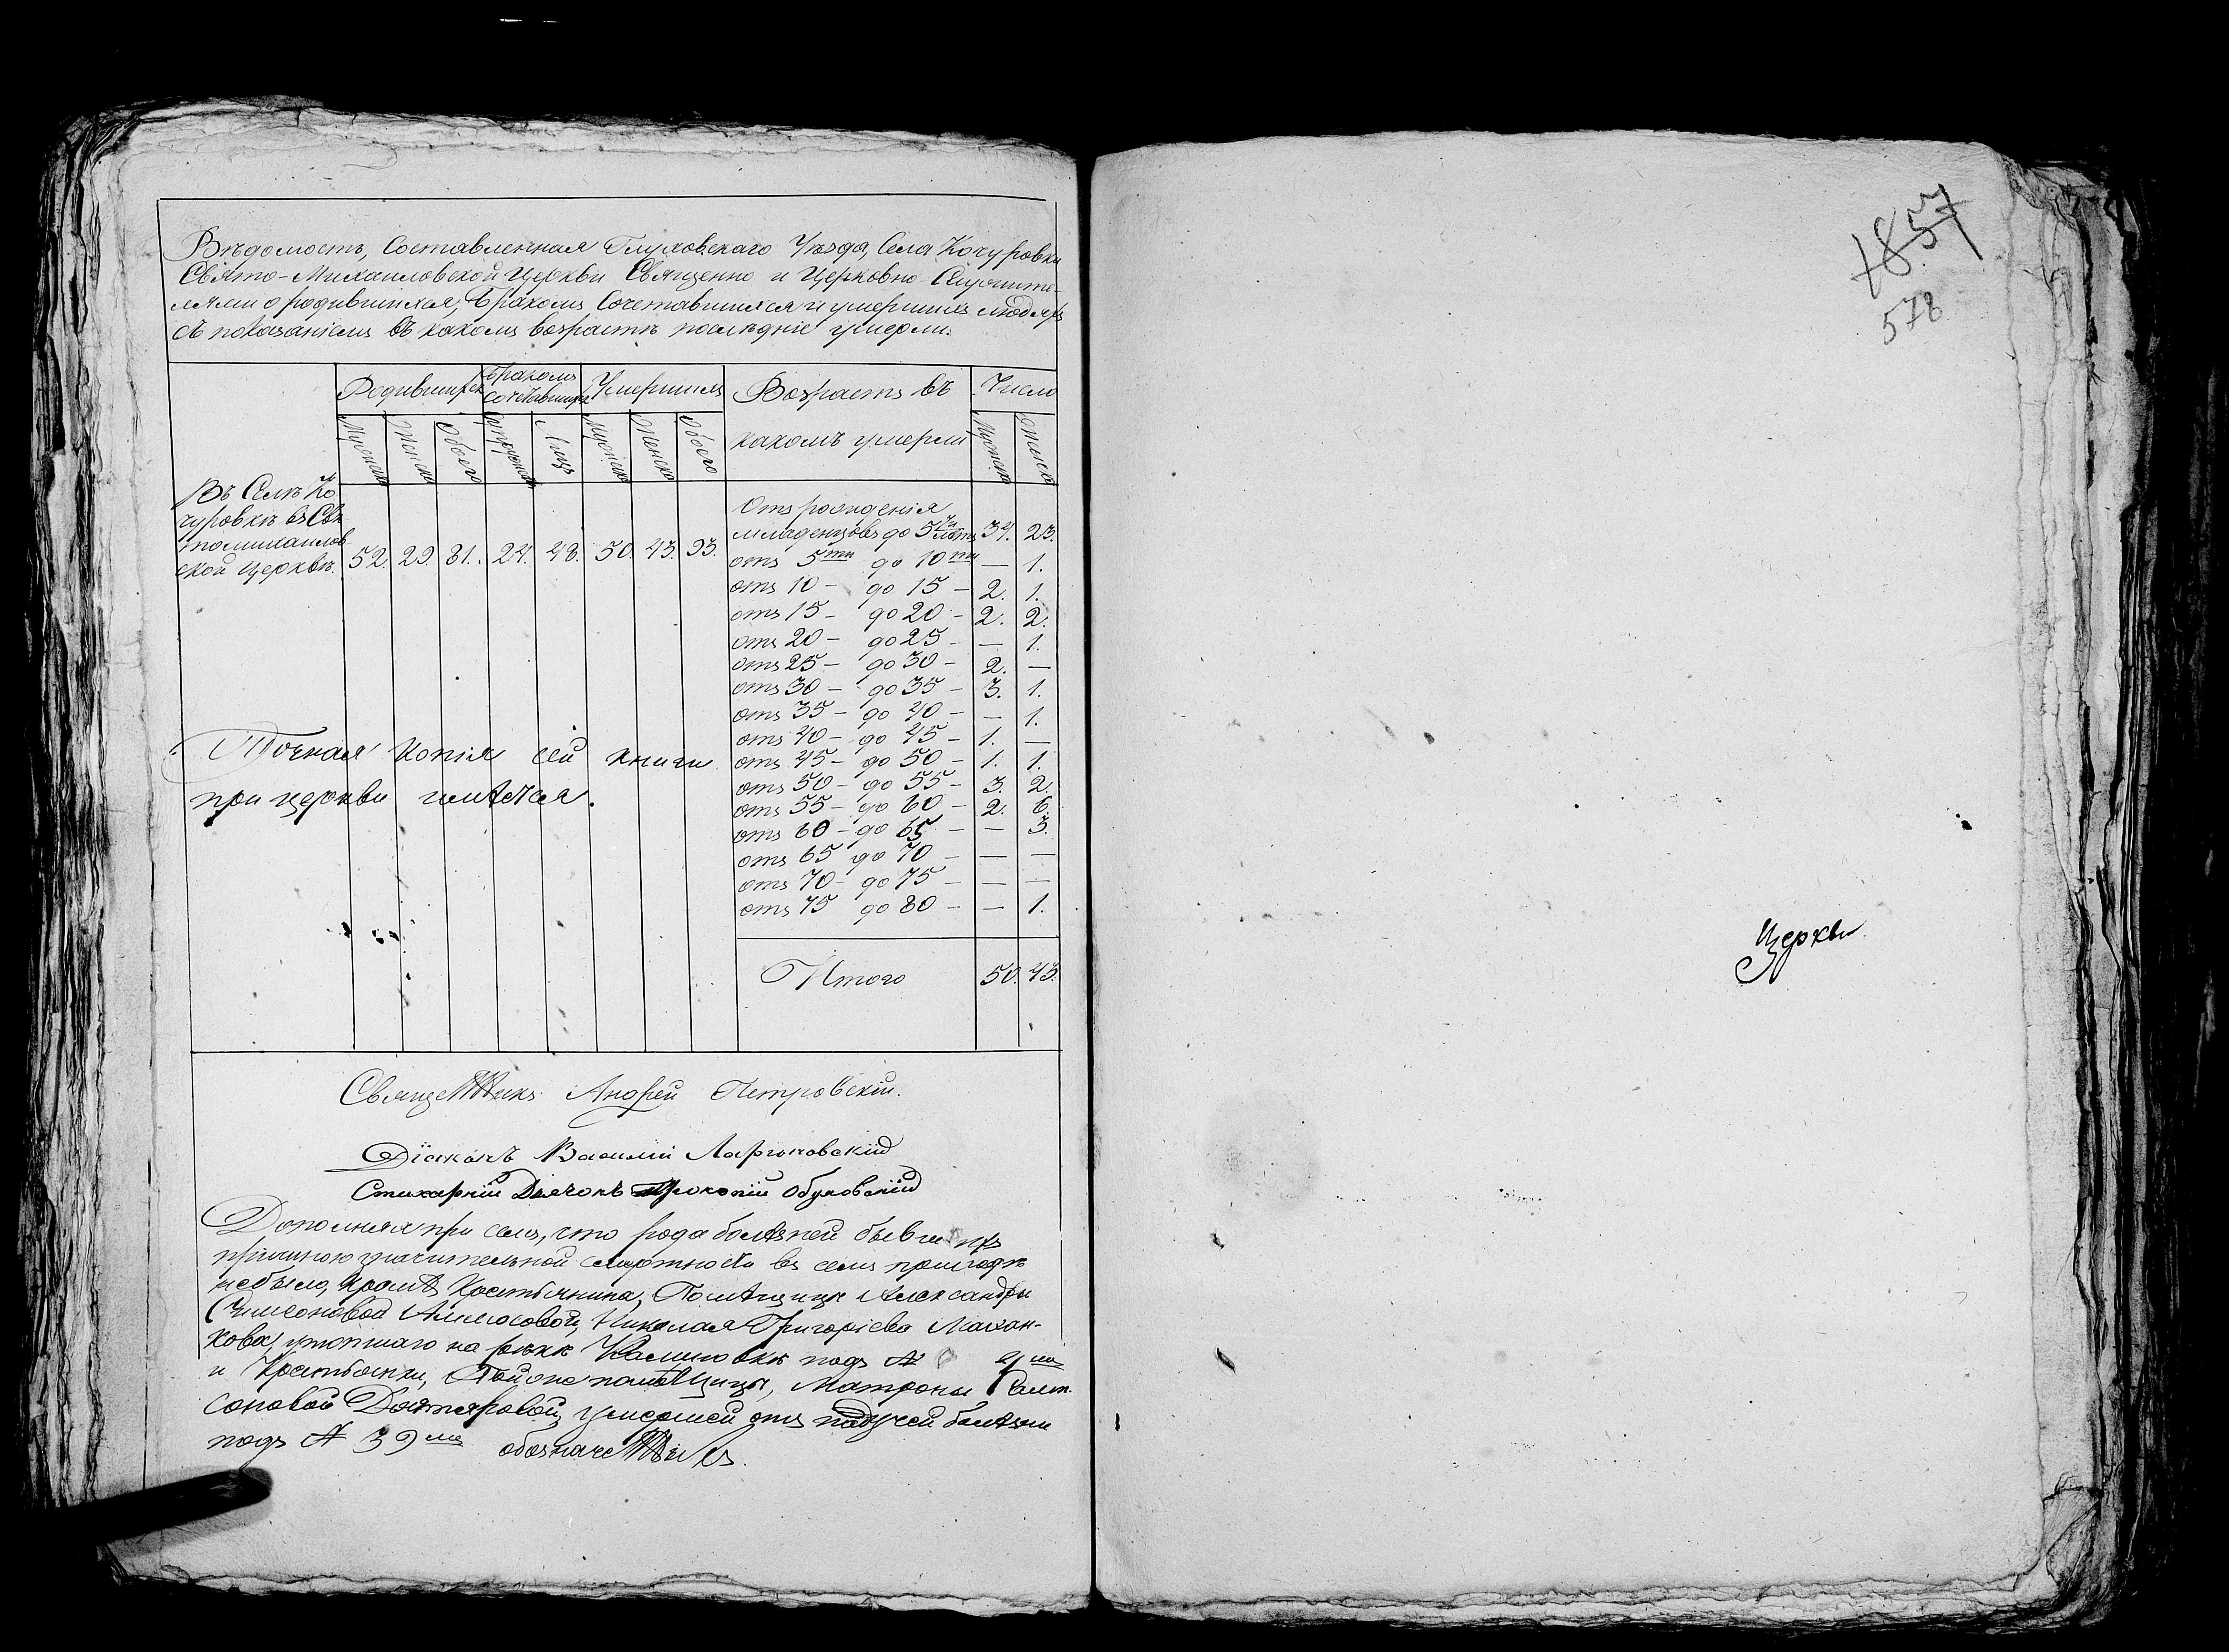 Вѣдомость, Составленная Глуховскаго Уѣзда, Села Кочуровки
Свято-Михаиловской Церкви Священно и Церковно-Служите-
лями о родившихся, Бракомъ Сочетавшихся и умершихъ людяхъ
съ показаніемъ въ какомъ возрастѣ послѣдніе умерли.
Родившихся Бракомъ Сочетавшихся Умершихъ Возрастъ въ какомъ умерли Число
Мужеска Женска Обоего Супружествъ Лицъ Мужеска Женска Обоего Мужеска Женска
Въ Селѣ Ко
чуровкѣ въ Свя
томихаилов
ской Церквѣ. 52. 29. 81. 24. 48. 50. 43. 93.
Отъ рожденія
младенцовъ до 5ти лѣтъ 34. 23.
отъ 5ти до 10ти — 1.
отъ 10 — до 15 — 2. 1.
отъ 15 — до 20 — 2. 2.
отъ 20 — до 25 — — 1.
отъ 25 — до 30 — 2. —
отъ 30 — до 35 — 3. 1.
отъ 35 — до 40 — — 1.
отъ 40 — до 45 — 1. —
отъ 45 — до 50 — 1. 1.
отъ 50 — до 55 — 3. 2.
отъ 55 — до 60 — 2. 6.
отъ 60 — до 65 — — 3.
отъ 65 до 70 — — —
отъ 70 — до 75 — — —
отъ 75 до 80 — — 1.
Итого 50. 43.
Точная копія сей книги
при церкви имѣется.
Священникъ Андрей Петровскій.
Діаконъ Василій
Стихарный Дьячокъ Прокопій Обуховскій
Дополняя при семъ, что рода болѣзней бывшихъ
причиною значительной смертности въ семъ приходѣ
небыло, кромѣ Крестьянина, Помѣщицы Александры
Николая Григоріева
утопшаго на рѣкѣ подъ № 4мъ
и Крестьянки, Той же помѣщицы, Матроны
умершей отъ падучей болѣзни
подъ № 39мъ обозначенныхъ.
1857
578
Церкви